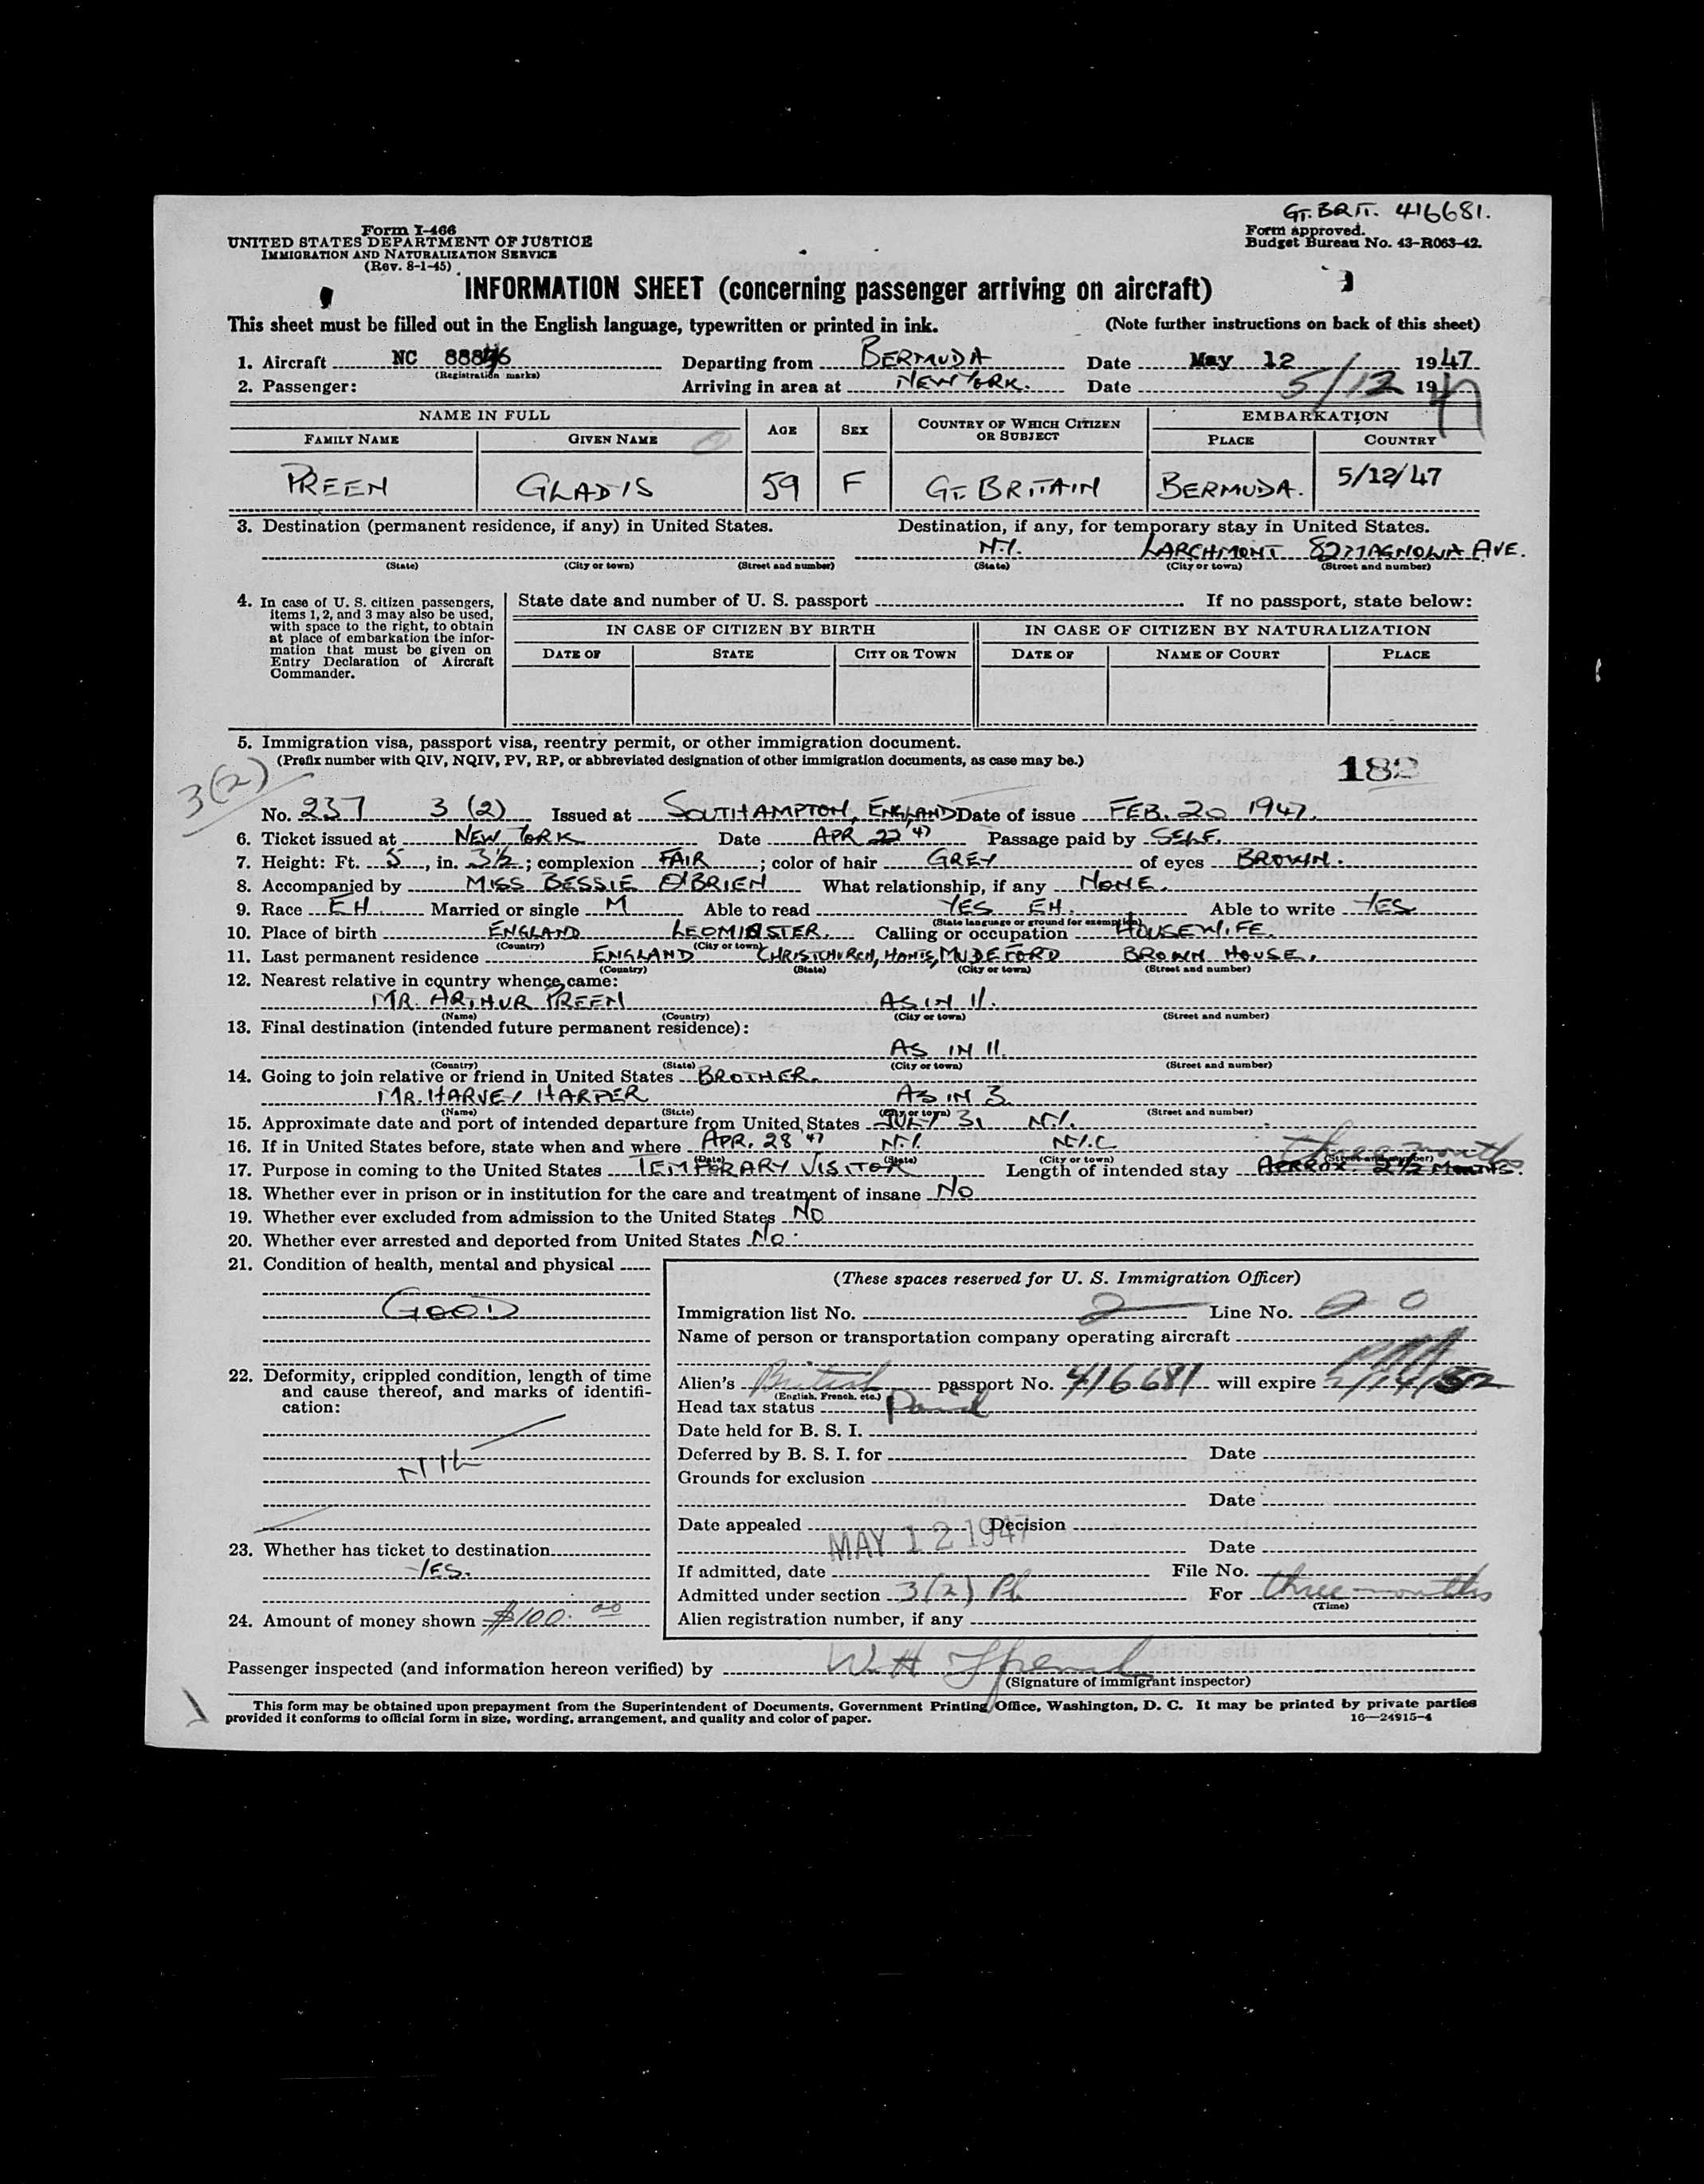 GT. BRIT. 416681.
Form I-466
UNITED STATES DEPARTMENT OF JUSTICE
IMMIGRATION AND NATURALIZATION SERVICE
(Rev. 8-1-45)
Form approved.
Budget Bureau No. 43-R063-42.
INFORMATION SHEET (concerning passenger arriving on aircraft)
This sheet must be filled out in the English language, typewritten or printed in ink. (Note further instructions on back of this sheet)
1. Aircraft NC Departing from BERMUDA Date May 12 1947
(Registration marks)
2. Passenger: Arriving in area at NEW YORK. Date 5/12 1947
NAME IN FULL AGE SEX COUNTRY OF WHICH CITIZEN OR SUBJECT EMBARKATION
FAMILY NAME GIVEN NAME PLACE COUNTRY
PREEN GLADIS 59 F GT. BRITAIN BERMUDA. 5/12/47
3. Destination (permanent residence, if any) in United States. Destination, if any, for temporary stay in United States.
N.Y. LARCHMONT 82 MAGNOLIA AVE.
(State) (City or town) (Street and number) (State) (City or town) (Street and number)
4. In case of U. S. citizen passengers, items 1, 2, and 3 may also be used, with space to the right, to obtain at place of embarkation the information that must be given on Entry Declaration of Aircraft Commander.
State date and number of U. S. passport If no passport, state below:
IN CASE OF CITIZEN BY BIRTH IN CASE OF CITIZEN BY NATURALIZATION
DATE OF STATE CITY OR TOWN DATE OF NAME OF COURT PLACE
5. Immigration visa, passport visa, reentry permit, or other immigration document.
(Prefix number with QIV, NQIV, PV, RP, or abbreviated designation of other immigration documents, as case may be.) 182
3(2)
No. 237 3 (2) Issued at SOUTHAMPTON, ENGLAND Date of issue FEB. 20 1947.
6. Ticket issued at NEW YORK Date APR 22 '47 Passage paid by SELF.
7. Height: Ft. 5, in. 3½; complexion FAIR; color of hair GREY of eyes BROWN.
8. Accompanied by MISS BESSIE O'BRIEN What relationship, if any NONE.
9. Race EH. Married or single M Able to read YES EH. Able to write YES
(State language or ground for exemption)
10. Place of birth ENGLAND LEOMINSTER. Calling or occupation HOUSEWIFE.
(Country) (City or town)
11. Last permanent residence ENGLAND CHRISTCHURCH, HANTS, MUDEFORD BROWN HOUSE.
(Country) (State) (City or town) (Street and number)
12. Nearest relative in country whence came:
MR. ARTHUR PREEN AS IN 11.
(Name) (Country) (City or town) (Street and number)
13. Final destination (intended future permanent residence):
AS IN 11.
(Country) (State) (City or town) (Street and number)
14. Going to join relative or friend in United States BROTHER.
MR. HARVEY HARPER AS IN 3.
(Name) (State) (City or town) (Street and number)
15. Approximate date and port of intended departure from United States JULY 31 N.Y.
16. If in United States before, state when and where APR. 28 '47 N.Y. N.Y.C
(Date) (State) (City or town) (Street and number)
three months
17. Purpose in coming to the United States TEMPORARY VISITOR Length of intended stay APPROX. 2½ MONTHS.
18. Whether ever in prison or in institution for the care and treatment of insane NO
19. Whether ever excluded from admission to the United States NO
20. Whether ever arrested and deported from United States NO.
21. Condition of health, mental and physical
GOOD
22. Deformity, crippled condition, length of time and cause thereof, and marks of identification:
NIL
23. Whether has ticket to destination
YES.
24. Amount of money shown $100.00
(These spaces reserved for U. S. Immigration Officer)
Immigration list No. 2 Line No. 20
Name of person or transportation company operating aircraft
Alien's British passport No. 416681 will expire
(English, French, etc.)
Head tax status Paid
Date held for B. S. I.
Deferred by B. S. I. for Date
Grounds for exclusion
Date
Date appealed Decision
MAY 12 1947 Date
If admitted, date File No.
Admitted under section 3(2) For three months
(Time)
Alien registration number, if any
Passenger inspected (and information hereon verified) by W H
(Signature of immigrant inspector)
This form may be obtained upon prepayment from the Superintendent of Documents, Government Printing Office, Washington, D. C. It may be printed by private parties
provided it conforms to official form in size, wording, arrangement, and quality and color of paper. 16—24915-4